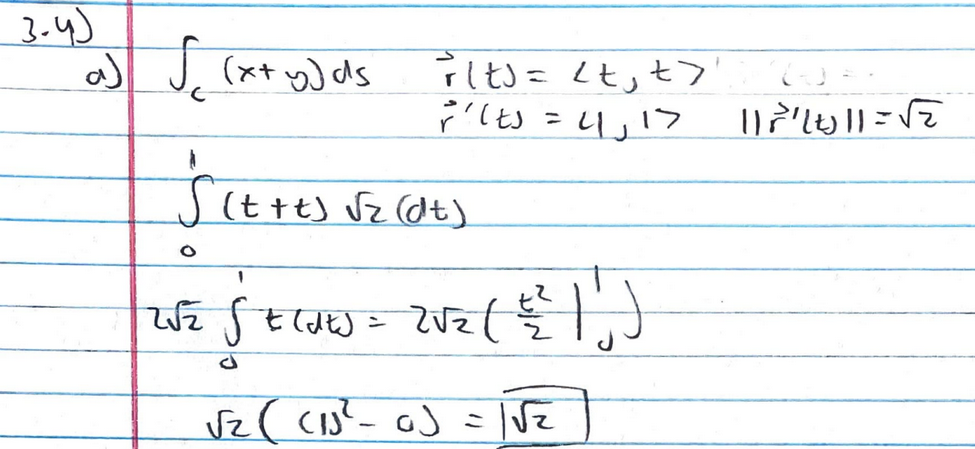 3.4)
a) ∫_C (x+y) ds r⃗(t) = <t, t>
r⃗'(t) = <1, 1> ||r⃗'(t)|| = √2
∫_0^1 (t+t) √2 (dt)
2√2 ∫_0^1 t (dt) = 2√2 ( t²/2 |_0^1 )
√2 ( (1)² - 0) = √2